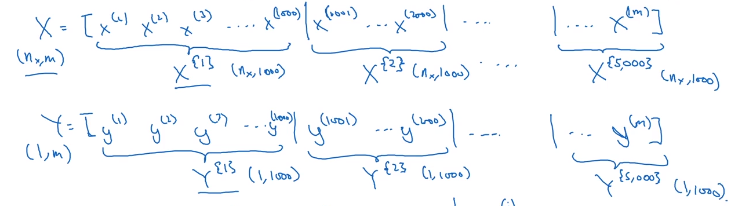 X = [x^(1) x^(2) x^(3) .... x^(1000) | x^(1001) ... x^(2000) | ..... | .... x^(m)]
(n_x, m) X^{1} (n_x, 1000) X^{2} (n_x, 1000) .... X^{5,000} (n_x, 1000)
Y = [y^(1) y^(2) y^(3) ... y^(1000) | y^(1001) ... y^(2000) | .... | ... y^(m)]
(1, m) Y^{1} (1, 1000) Y^{2} (1, 1000) Y^{5,000} (1, 1000).